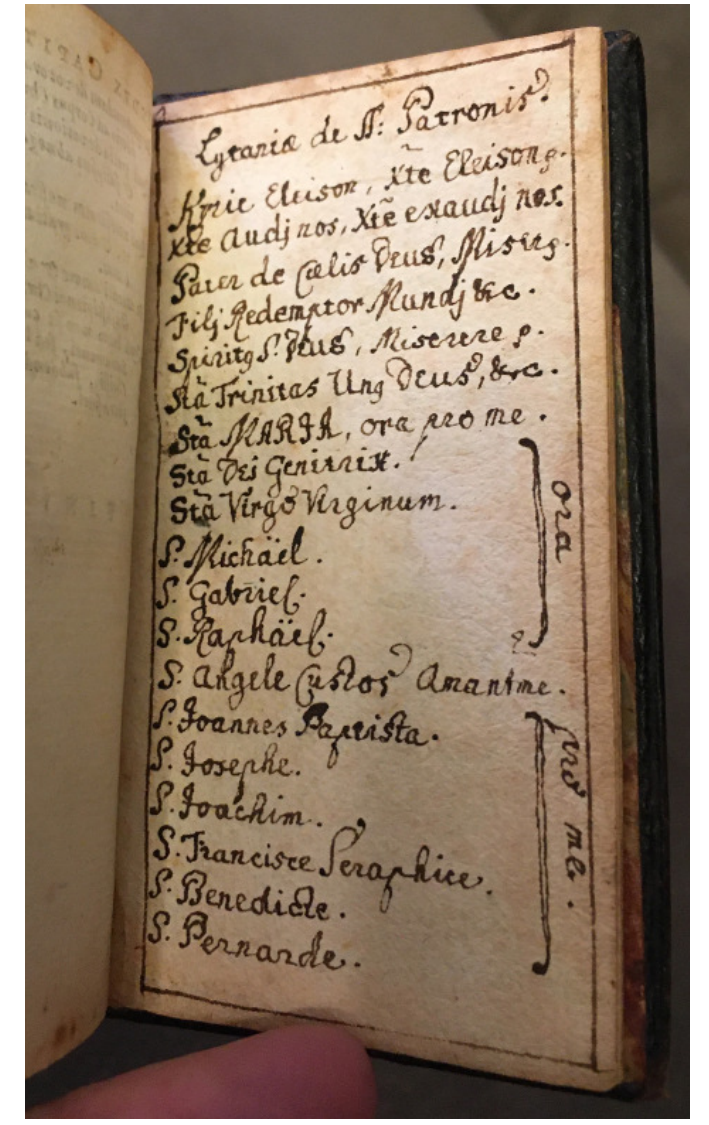 Lytaniæ de SS: Patronis.
Kyrie Eleison, Xte Eleison.
Xte Audj nos, Xte exaudj nos.
Pater de Cœlis Deus, Miserę.
Filj Redemptor Mundj &c.
Spiritq S. Deus, Miserere p.
Stã Trinitas Unq Deus, &c.
Stã MARIA, ora pro me.
Stã Dei Genitrix.
Stã Virgo Virginum.
S. Michäel.
S. Gabriel.
S. Raphäel.
S. Angele Custos Amantme.
S. Joannes Baptista.
S. Josephe.
S. Joachim.
S. Francisce Seraphice.
S. Benedicte.
S. Bernarde.
ora
pro me.